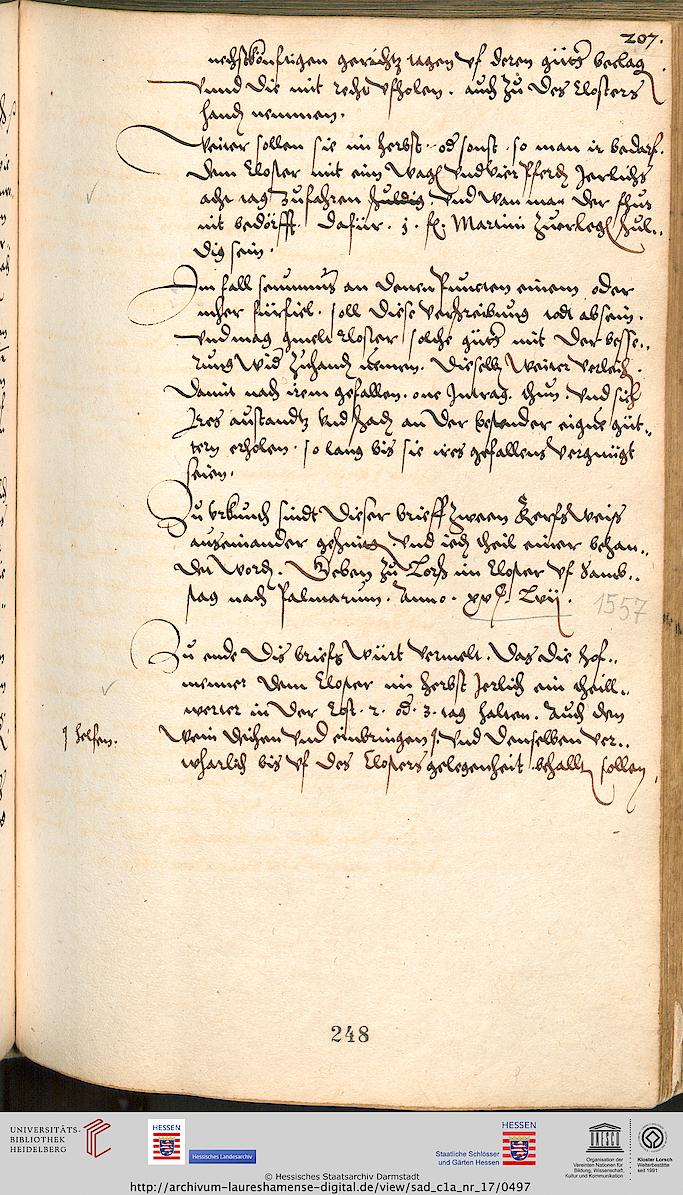 207.
nechstkönfftigen gerichtz tagen vf deren güter beclag
vnnd die mit recht vfholen. auch zu des Closters
handt nemmen.
Weiter sollen sie im herbst. od sonst. so man ir bedarf.
dem Closter mit ein wag vnd vier pferdt Jerlichs
acht tag zufahren huldig. vnd wan man der fhur
nit bedörfft. dafür. j. fl. Martini zuerleg schul..
dig sein.
Im fall seumnus an denen Puncten einem oder
mher fürfiel. soll diese verschreibung todt ab sein.
vnd mag gmelt Closter solche güter mit der besse..
rung wider zuhand nemen. dieselb weiter verleih.
damit nach irem gefallen. one Intrag. thun. vnd sich
Ires austandtz vnd schad an der bestender eigne güt..
tern erholen. so lang bis sie ires gefallens vergnügt
seien.
Zu vrkundt sindt dieser brieff zween Kerfsweiß
auseinander geschnitten. vnd iedem theil einer behan..
det word. Geben zu Lorsch im Closter vf Samb..
stag nach Palmarum. Anno. xvc. Lvij. 1557
Zu ende dis briefs würt vermelt. das die hof..
menner dem Closter im herbst Jerlich ein theill..
werter in der Cost. 2. od. 3. tag halten. Auch den
helfen.
wein deihen vnd einbringen. vnd denselben ver..
wharlich bis vf des Closters gelegenheit behallt sollen
248
UNIVERSITÄTS-
BIBLIOTHEK
HEIDELBERG
HESSEN
Hessisches Landesarchiv
Staatliche Schlösser
und Gärten Hessen
HESSEN
Organisation der
Vereinten Nationen für
Bildung, Wissenschaft,
Kultur und Kommunikation
Kloster Lorsch
Welterbestätte
seit 1991
© Hessisches Staatsarchiv Darmstadt
http://archivum-laureshamense-digital.de/view/sad_c1a_nr_17/0497